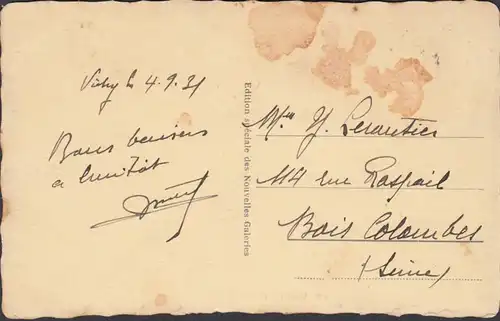 Vichy le 4.9.31
Bons baisers
a bientôt
Edition spéciale des Nouvelles Galeries
114 rue Raspail
Bois Colombes
(Seine)